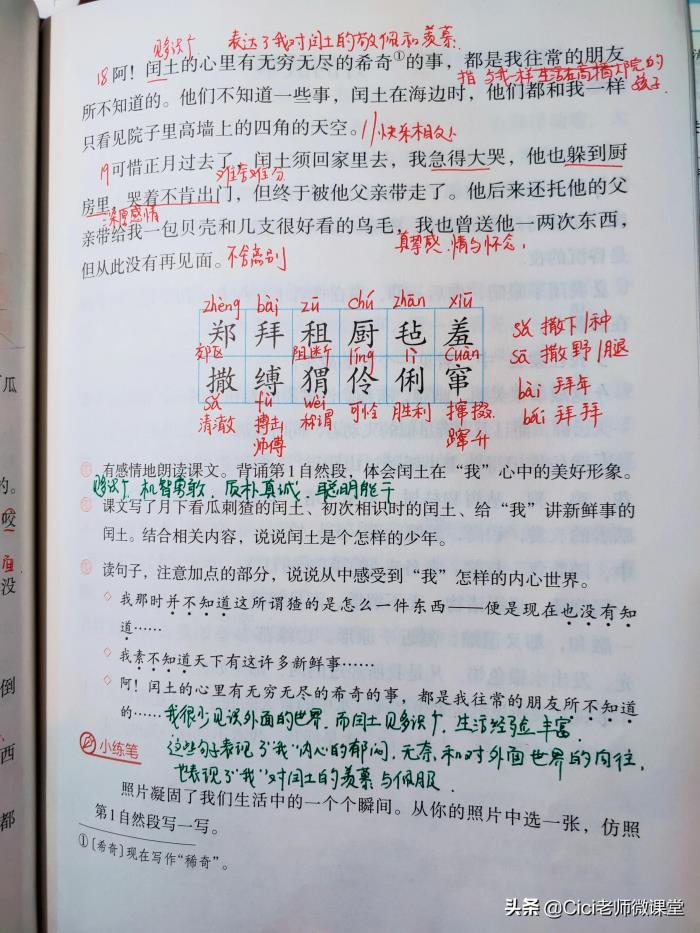 见多识广 表达了我对闰土的敬佩和羡慕
18 阿！闰土的心里有无穷无尽的希奇①的事，都是我往常的朋友
指与我一样生活在高墙大院的孩子
所不知道的。他们不知道一些事，闰土在海边时，他们都和我一样
只看见院子里高墙上的四角的天空。 //快乐相处
19 可惜正月过去了，闰土须回家里去，我急得大哭，他也躲到厨
难舍难分
房里，哭着不肯出门，但终于被他父亲带走了。他后来还托他的父
深厚感情
亲带给我一包贝壳和几支很好看的鸟毛，我也曾送他一两次东西，
真挚感情与怀念
但从此没有再见面。 不舍离别
zhèng bài zū chú zhān xiū
郑 拜 租 厨 毡 羞
sǎ 撒下 1种
郊区 阻 líng lì cuàn
sā 撒野 1腿
撒 缚 猬 伶 俐 窜
bài 拜年
sǎ fù wèi 可怜 胜利 撺掇
bái 拜拜
清澈 搏击 称谓 蹿升
师傅
有感情地朗读课文。背诵第1自然段，体会闰土在“我”心中的美好形象。
见多识广，机智勇敢，质朴真诚，聪明能干
课文写了月下看瓜刺猹的闰土、初次相识时的闰土、给“我”讲新鲜事的
闰土。结合相关内容，说说闰土是个怎样的少年。
读句子，注意加点的部分，说说从中感受到“我”怎样的内心世界。
◇ 我那时并不知道这所谓猹的是怎么一件东西——便是现在也没有知
道……
◇ 我素不知道天下有这许多新鲜事……
◇ 阿！闰土的心里有无穷无尽的希奇的事，都是我往常的朋友所不知道
的…… 我很少见识外面的世界，而闰土见多识广，生活经验丰富。
小练笔 这些句子表现了“我”内心的郁闷、无奈，和对外面世界的向往，
也表现了“我”对闰土的羡慕与佩服。
照片凝固了我们生活中的一个个瞬间。从你的照片中选一张，仿照
第1自然段写一写。
①〔希奇〕现在写作“稀奇”。
瓜
的。
咬
没
倒
西
都
头条 @Cici老师微课堂